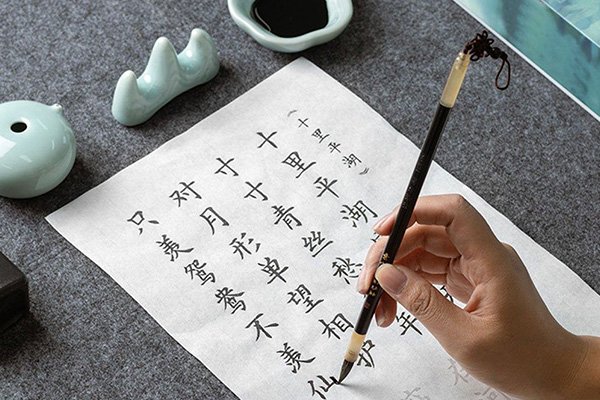 《十里平湖》
十里平湖
寸寸青丝愁年
对月形单望相护
只羡鸳鸯不羡仙